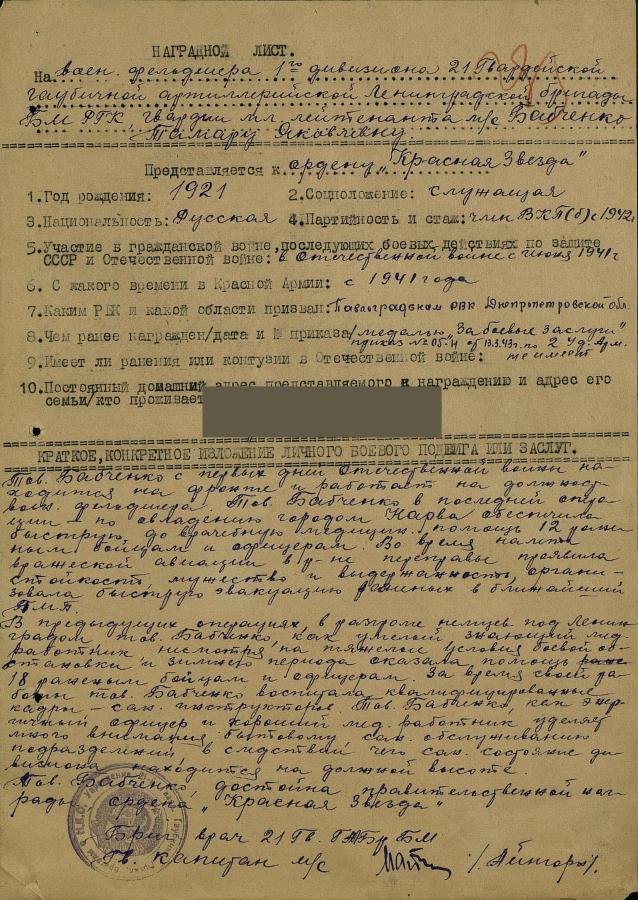 НАГРАДНОЙ ЛИСТ.
На воен. фельдшера 1го дивизиона 21 Гвардейской
гаубичной артиллерийской Ленинградской бригады
БМ РГК гвардии мл. лейтенанта м/с Бабченко
Тамару Яковлевну.
Представляется к ордену „Красная Звезда"
1.Год рождения: 1921 2.Соцположение: служащая
3.Национальность: Русская 4.Партийность и стаж: член ВКП(б) с 1942г
5.Участие в гражданской войне, последующих боевых действиях по защите
СССР и Отечественной войне: в Отечественной войне с июня 1941г
6. С какого времени в Красной Армии: с 1941 года
7.Каким РВК и какой области призван: Павлоградском РВК Днепропетровской обл.
8.Чем ранее награжден/дата и № приказа/ медалью „За боевые заслуги"
приказ № 05-Н от 13.3.43г. по 2 Уд. Арм.
9.Имеет ли ранения или контузии в Отечественной войне: не имеет
10.Постоянный домашний адрес представляемого к награждению и адрес его
семьи/кто проживает
КРАТКОЕ, КОНКРЕТНОЕ ИЗЛОЖЕНИЕ ЛИЧНОГО БОЕВОГО ПОДВИГА ИЛИ ЗАСЛУГ.
Тов. Бабченко с первых дней Отечественной войны на-
ходится на фронте и работает на должност.
воен. фельдшера. Тов. Бабченко в последней опера
ции – по овладению городом Нарва обеспечила
быструю, до врачебную медицин. помощь 12 ране
ным бойцам и офицерам. Во время налета
вражеской авиации в р-не переправы проявила
стойкость, мужество и выдержанность, органи-
зовала быструю эвакуацию раненых в ближайший
БМП.
В предыдущих операциях, в разгроме немцев под Ленин
градом тов. Бабченко, как умелый знающий мед.
работник нисмотря, на тяжелые условия боевой об-
становки и зимнего периода оказала помощь
18 раненым бойцам и офицерам. За время своей ра
боты тов. Бабченко воспитала квалифицированные
кадры – сан. инструкторов. Тов. Бабченко, как энер-
гичный офицер и хороший мед. работник уделяет
много внимания бытовому сан. обслуживанию
подразделений, в следствии чего сан. состояние ди
визиона находится на должной высоте.
Тов. Бабченко, достойна правительственной наг-
рады ордена „Красная Звезда"
Бриг. врач 21 Гв. ГАБр БМ
Гв. капитан м/с